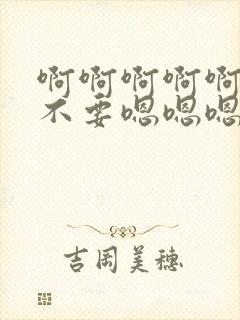 啊啊啊啊啊
不要嗯嗯嗯
吉岡美穗